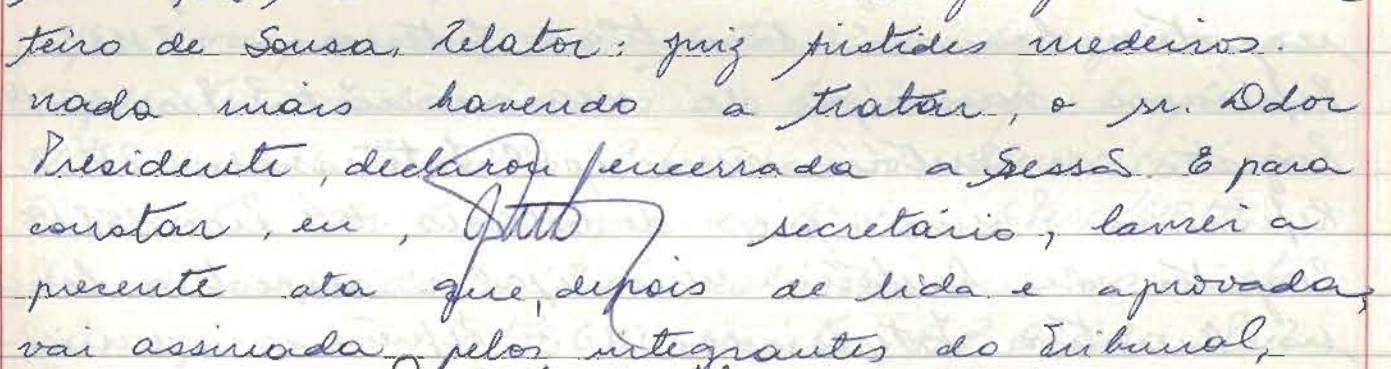 teiro de Sousa, Relator: juiz Aristides medeiros.
nada mais havendo a tratar, o sr. Ddor
Presidente, declarou encerrada a Sessão. E para
constar, eu, secretário, lavrei a
presente ata que, depois de lida e aprovada,
vai assinada pelos integrantes do Tribunal,